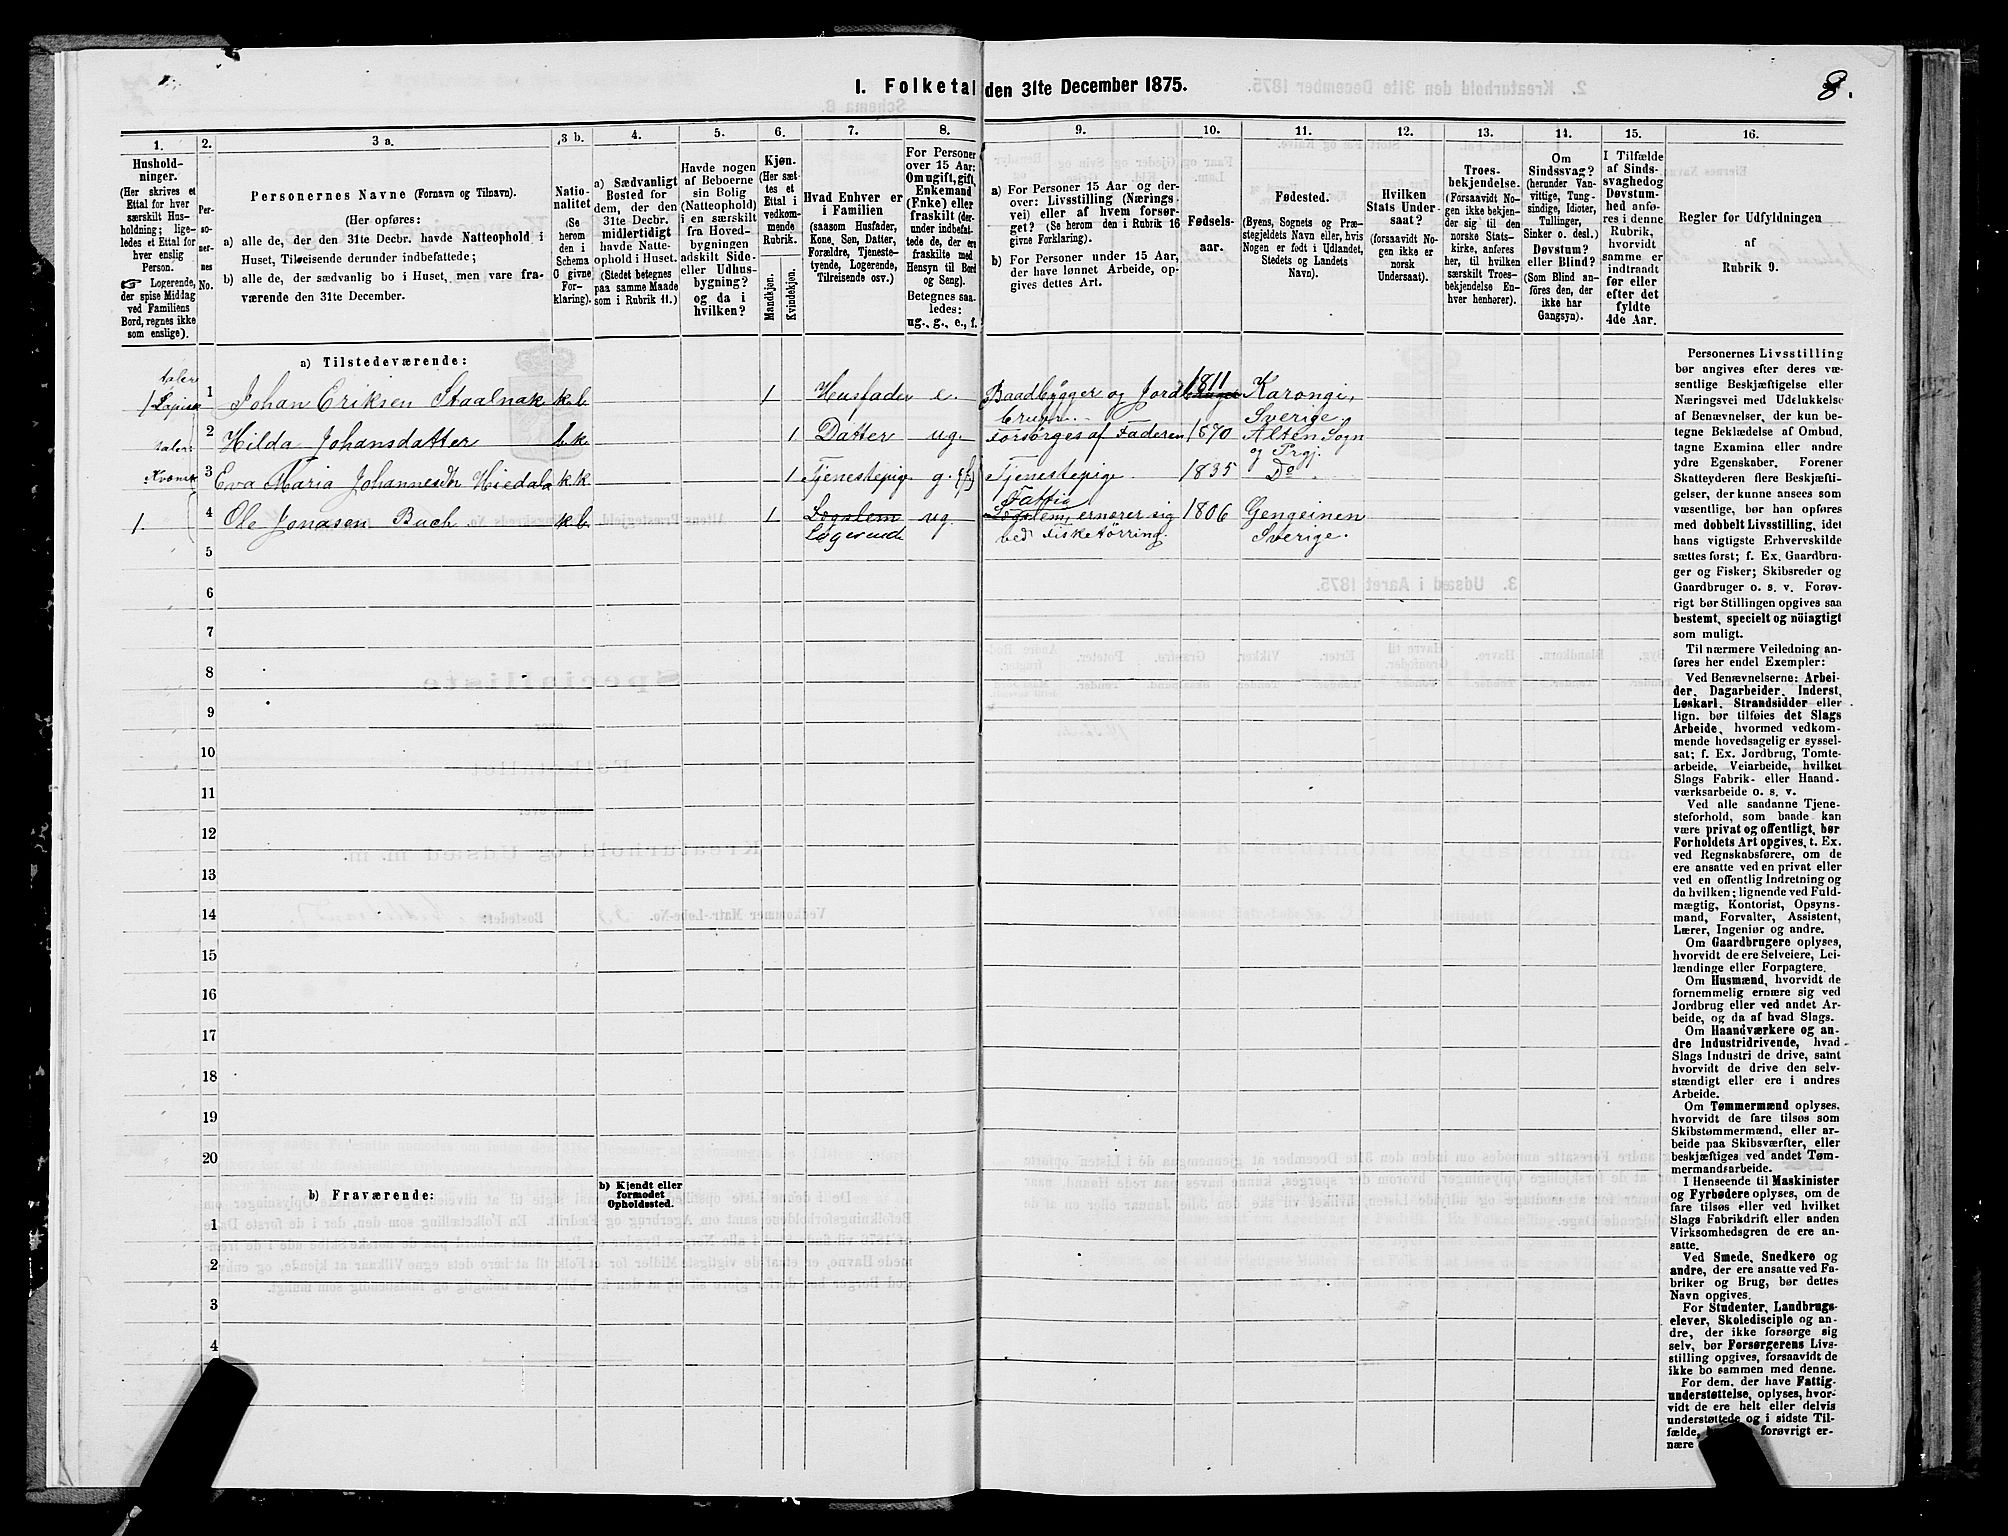 8.
I. Folketal den 31te December 1875.
1. 2. 3 a. 3 b. 4. 5. 6. 7. 8. 9. 10. 11. 12. 13. 14. 15. 16.
Hushold-
ninger.
(Her skrives et
Ettal for hver
særskilt Hus-
holdning; lige-
ledes et Ettal for
hver enslig
Person.
☞ Logerende,
der spise Middag
ved Familiens
Bord, regnes ikke
som enslige).
Per-
so-
ner-
nes
No.
Personernes Navne (Fornavn og Tilnavn).
(Her opføres:
a) alle de, der den 31te Decbr. havde Natteophold i
Huset, Tilreisende derunder indbefattede;
b) alle de, der sædvanlig bo i Huset, men vare fra-
værende den 31te December.
Natio-
nalitet
(Se
herom
den i
Schema
O givne
For-
klaring).
a) Sædvanligt
Bosted for
dem, der den
31te Decbr.
midlertidigt
havde Natte-
ophold i Huset.
(Stedet betegnes
paa samme Maade
som i Rubrik 11.)
Havde nogen
af Beboerne
sin Bolig
(Natteophold)
i en særskilt
fra Hoved-
bygningen
adskilt Side-
eller Udhus-
bygning?
og da i
hvilken?
Kjøn.
(Her sæt-
tes et
Ettal i
vedkom-
mende
Rubrik.
Mandkjøn.
Kvindekjøn.
Hvad Enhver er
i Familien
(saasom Husfader,
Kone, Søn, Datter,
Forældre, Tjeneste-
tyende, Logerende,
Tilreisende osv.)
For Personer
over 15 Aar:
Om ugift, gift,
Enkemand
(Enke) eller
fraskilt (der-
under indbefat-
tede de, der ere
fraskilte med
Hensyn til Bord
og Seng).
Betegnes saa-
ledes:
ug., g., e., f.
a) For Personer 15 Aar og der-
over: Livsstilling (Nærings-
vei) eller af hvem forsør-
get? (Se herom den i Rubrik 16
givne Forklaring).
b) For Personer under 15 Aar,
der have lønnet Arbeide, op-
gives dettes Art.
Fødsels-
aar.
Fødested.
(Byens, Sognets og Præ-
stegjeldets Navn eller, hvis
Nogen er født i Udlandet,
Stedets og Landets
Navn).
Hvilken
Stats Under-
saat?
(forsaavidt No-
gen ikke er
norsk
Undersaat).
Troes-
bekjendelse.
(Forsaavidt No-
gen ikke bekjen-
der sig til den
norske Stats-
kirke, anføres
her, til hvilken
særskilt Troes-
bekjendelse En-
hver henhører).
Om
Sindssvag?
(herunder Van-
vittige, Tung-
sindige, Idioter,
Tullinger,
Sinker o. desl.)
Døvstum?
eller Blind?
(Som Blind an-
føres den, der
ikke har
Gangsyn).
I Tilfælde
af Sinds-
svaghed og
Døvstum-
hed anfø-
res i denne
Rubrik,
hvorvidt
samme er
indtraadt
før eller
efter det
fyldte
4de Aar.
Regler for Udfyldningen
af
Rubrik 9.
a) Tilstedeværende:
1 1 Johan Eriksen Staalnak k.b. 1 Husfader e. Baadbygger og Jord 1811 Karongi,
bruger. Sverige.
2 Hilda Johansdatter b.k. 1 Datter ug. Forsørges af Faderen 1870 Alten Sogn
og Prgj.
3 Eva Maria Johannesdt k.k. 1 Tjenestepige g. Tjenestepige. 1835 Do.
1. 4 Ole Jonasen Buch k.b. 1 Logerende ug. Fattig, ernærer sig 1806 Gengeinen
ved Fisketørring. Sverige.
5
6
7
8
9
10
11
12
13
14
15
16
17
18
19
20
b) Fraværende:
b) Kjendt eller
formodet
Opholdssted.
1
2
3
4
Personernes Livsstilling
bør angives efter deres væ-
sentlige Beskjæftigelse eller
Næringsvei med Udelukkelse
af Benævnelser, der kun be-
tegne Beklædelse af Ombud,
tagne Examina eller andre
ydre Egenskaber. Forener
Skatteyderen flere Beskjæfti-
gelser, der kunne ansees som
væsentlige, bør han opføres
med dobbelt Livsstilling, idet
hans vigtigste Erhvervskilde
sættes først; f. Ex. Gaardbru-
ger og Fisker; Skibsreder og
Gaardbruger o. s. v. Forøv-
rigt bør Stillingen opgives saa
bestemt, specielt og nöiagtigt
som muligt.
Til nærmere Veiledning an-
føres her endel Exempler:
Ved Benævnelserne: Arbei-
der, Dagarbeider, Inderst,
Løskarl, Strandsidder eller
lign. bør tilføies det Slags
Arbeide, hvormed vedkom-
mende hovedsagelig er syssel-
sat; f. Ex. Jordbrug, Tomte-
arbeide, Veiarbeide, hvilket
Slags Fabrik- eller Haand-
værksarbeide o. s. v.
Ved alle saadanne Tjene-
steforhold, som baade kan
være privat og offentligt, bør
Forholdets Art opgives, t. Ex.
ved Regnskabsførere, om de
ere ansatte ved en privat eller
ved en offentlig Indretning og
da hvilken; lignende ved Fuld-
mægtig, Kontorist, Opsyns-
mand, Forvalter, Assistent,
Lærer, Ingeniør og andre.
Om Gaardbrugere oplyses,
hvorvidt de ere Selveiere, Lei-
lændinge eller Forpagtere.
Om Husmænd, hvorvidt de
fornemmelig ernære sig ved
Jordbrug eller ved andet Ar-
beide, og da af hvad Slags.
Om Haandværkere og an-
dre Industridrivende, hvad
Slags Industri de drive, samt
hvorvidt de drive den selv-
stændigt eller ere i andres
Arbeide.
Om Tømmermænd oplyses,
hvorvidt de fare tilsøs som
Skibstømmermænd, eller ar-
beide paa Skibsværfter, eller
beskjæftiges ved andet Tøm-
mermandsarbeide.
I Henseende til Maskinister
og Fyrbødere oplyses, om de
fare tilsøs eller ved hvilket
Slags Fabrikdrift eller anden
Virksomhedsgren de ere an-
satte.
Ved Smede, Snedkere og
andre, der ere ansatte ved Fa-
briker og Brug, bør dettes
Navn opgives.
For Studenter, Landbrugs-
elever, Skoledisciple og an-
dre, der ikke forsørge sig
selv, bør Forsørgerens Livs-
stilling opgives, forsaavidt de
ikke bo sammen med denne.
For dem, der have Fattig-
understøttelse, oplyses, hvor-
vidt de ere helt eller delvis
understøttede og i sidste Til-
fælde, forøvrigt er-
nære